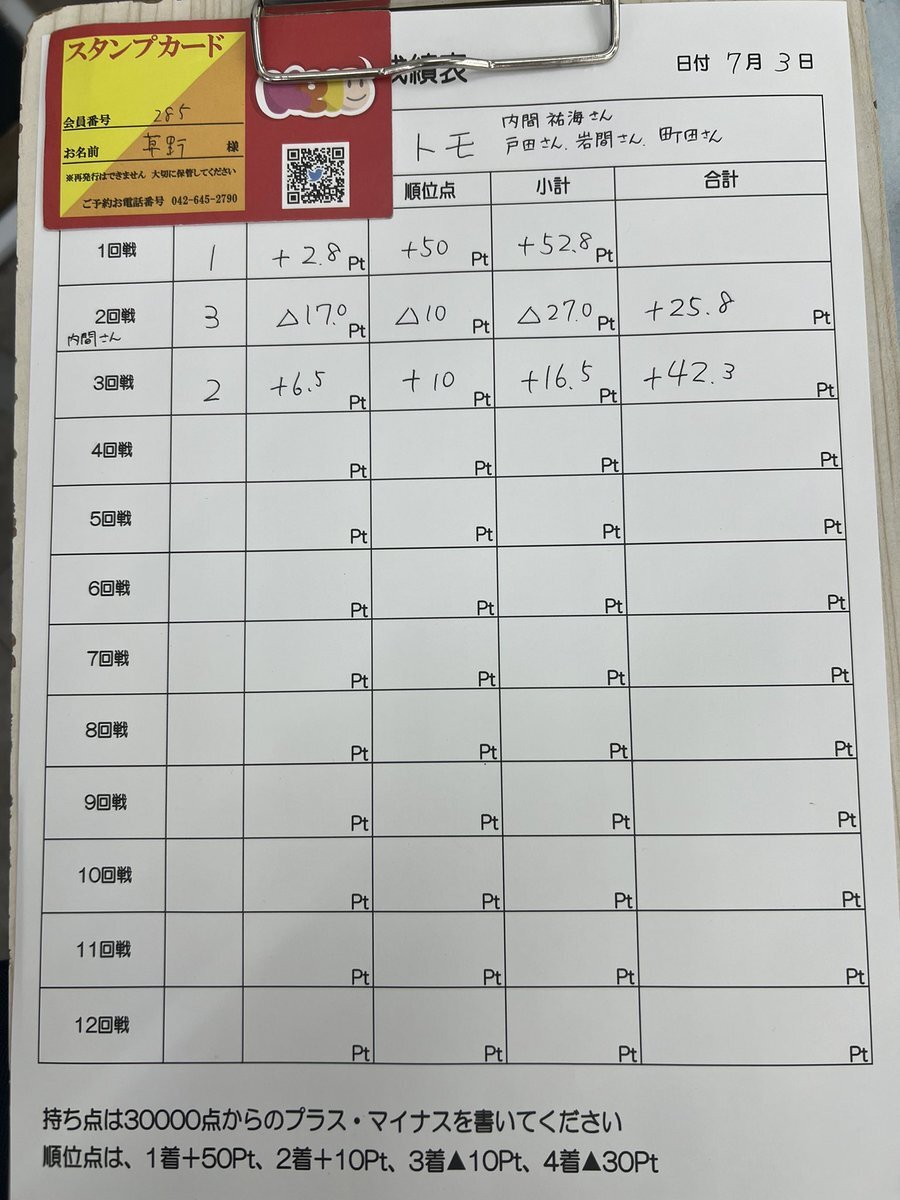 スタンプカード
会員番号 285
お名前 草野 様
※再発行はできません 大切に保管してください
ご予約お電話番号 042-645-2790
績表
日付 7月3日
トモ
内間 祐海さん
戸田さん、岩間さん、町田さん
順位点 小計 合計
1回戦 1 +2.8Pt +50Pt +52.8Pt
2回戦 3 △17.0Pt △10Pt △27.0Pt +25.8Pt
内間さん
3回戦 2 +6.5Pt +10Pt +16.5Pt +42.3Pt
4回戦 Pt Pt Pt Pt
5回戦 Pt Pt Pt Pt
6回戦 Pt Pt Pt Pt
7回戦 Pt Pt Pt Pt
8回戦 Pt Pt Pt Pt
9回戦 Pt Pt Pt Pt
10回戦 Pt Pt Pt Pt
11回戦 Pt Pt Pt Pt
12回戦 Pt Pt Pt Pt
持ち点は30000点からのプラス・マイナスを書いてください
順位点は、1着+50Pt、2着+10Pt、3着▲10Pt、4着▲30Pt